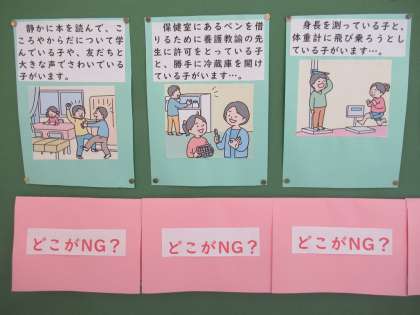 静かに本を読んで、こ
ころやからだについて学
んでいる子や、友だちと
大きな声でさわいでいる
子がいます。
保健室にあるペンを借
りるために養護教諭の先
生に許可をとっている子
と、勝手に冷蔵庫を開け
ている子がいます…。
身長を測っている子と、
体重計に飛び乗ろうとし
ている子がいます…。
どこがNG？
どこがNG？
どこがNG？